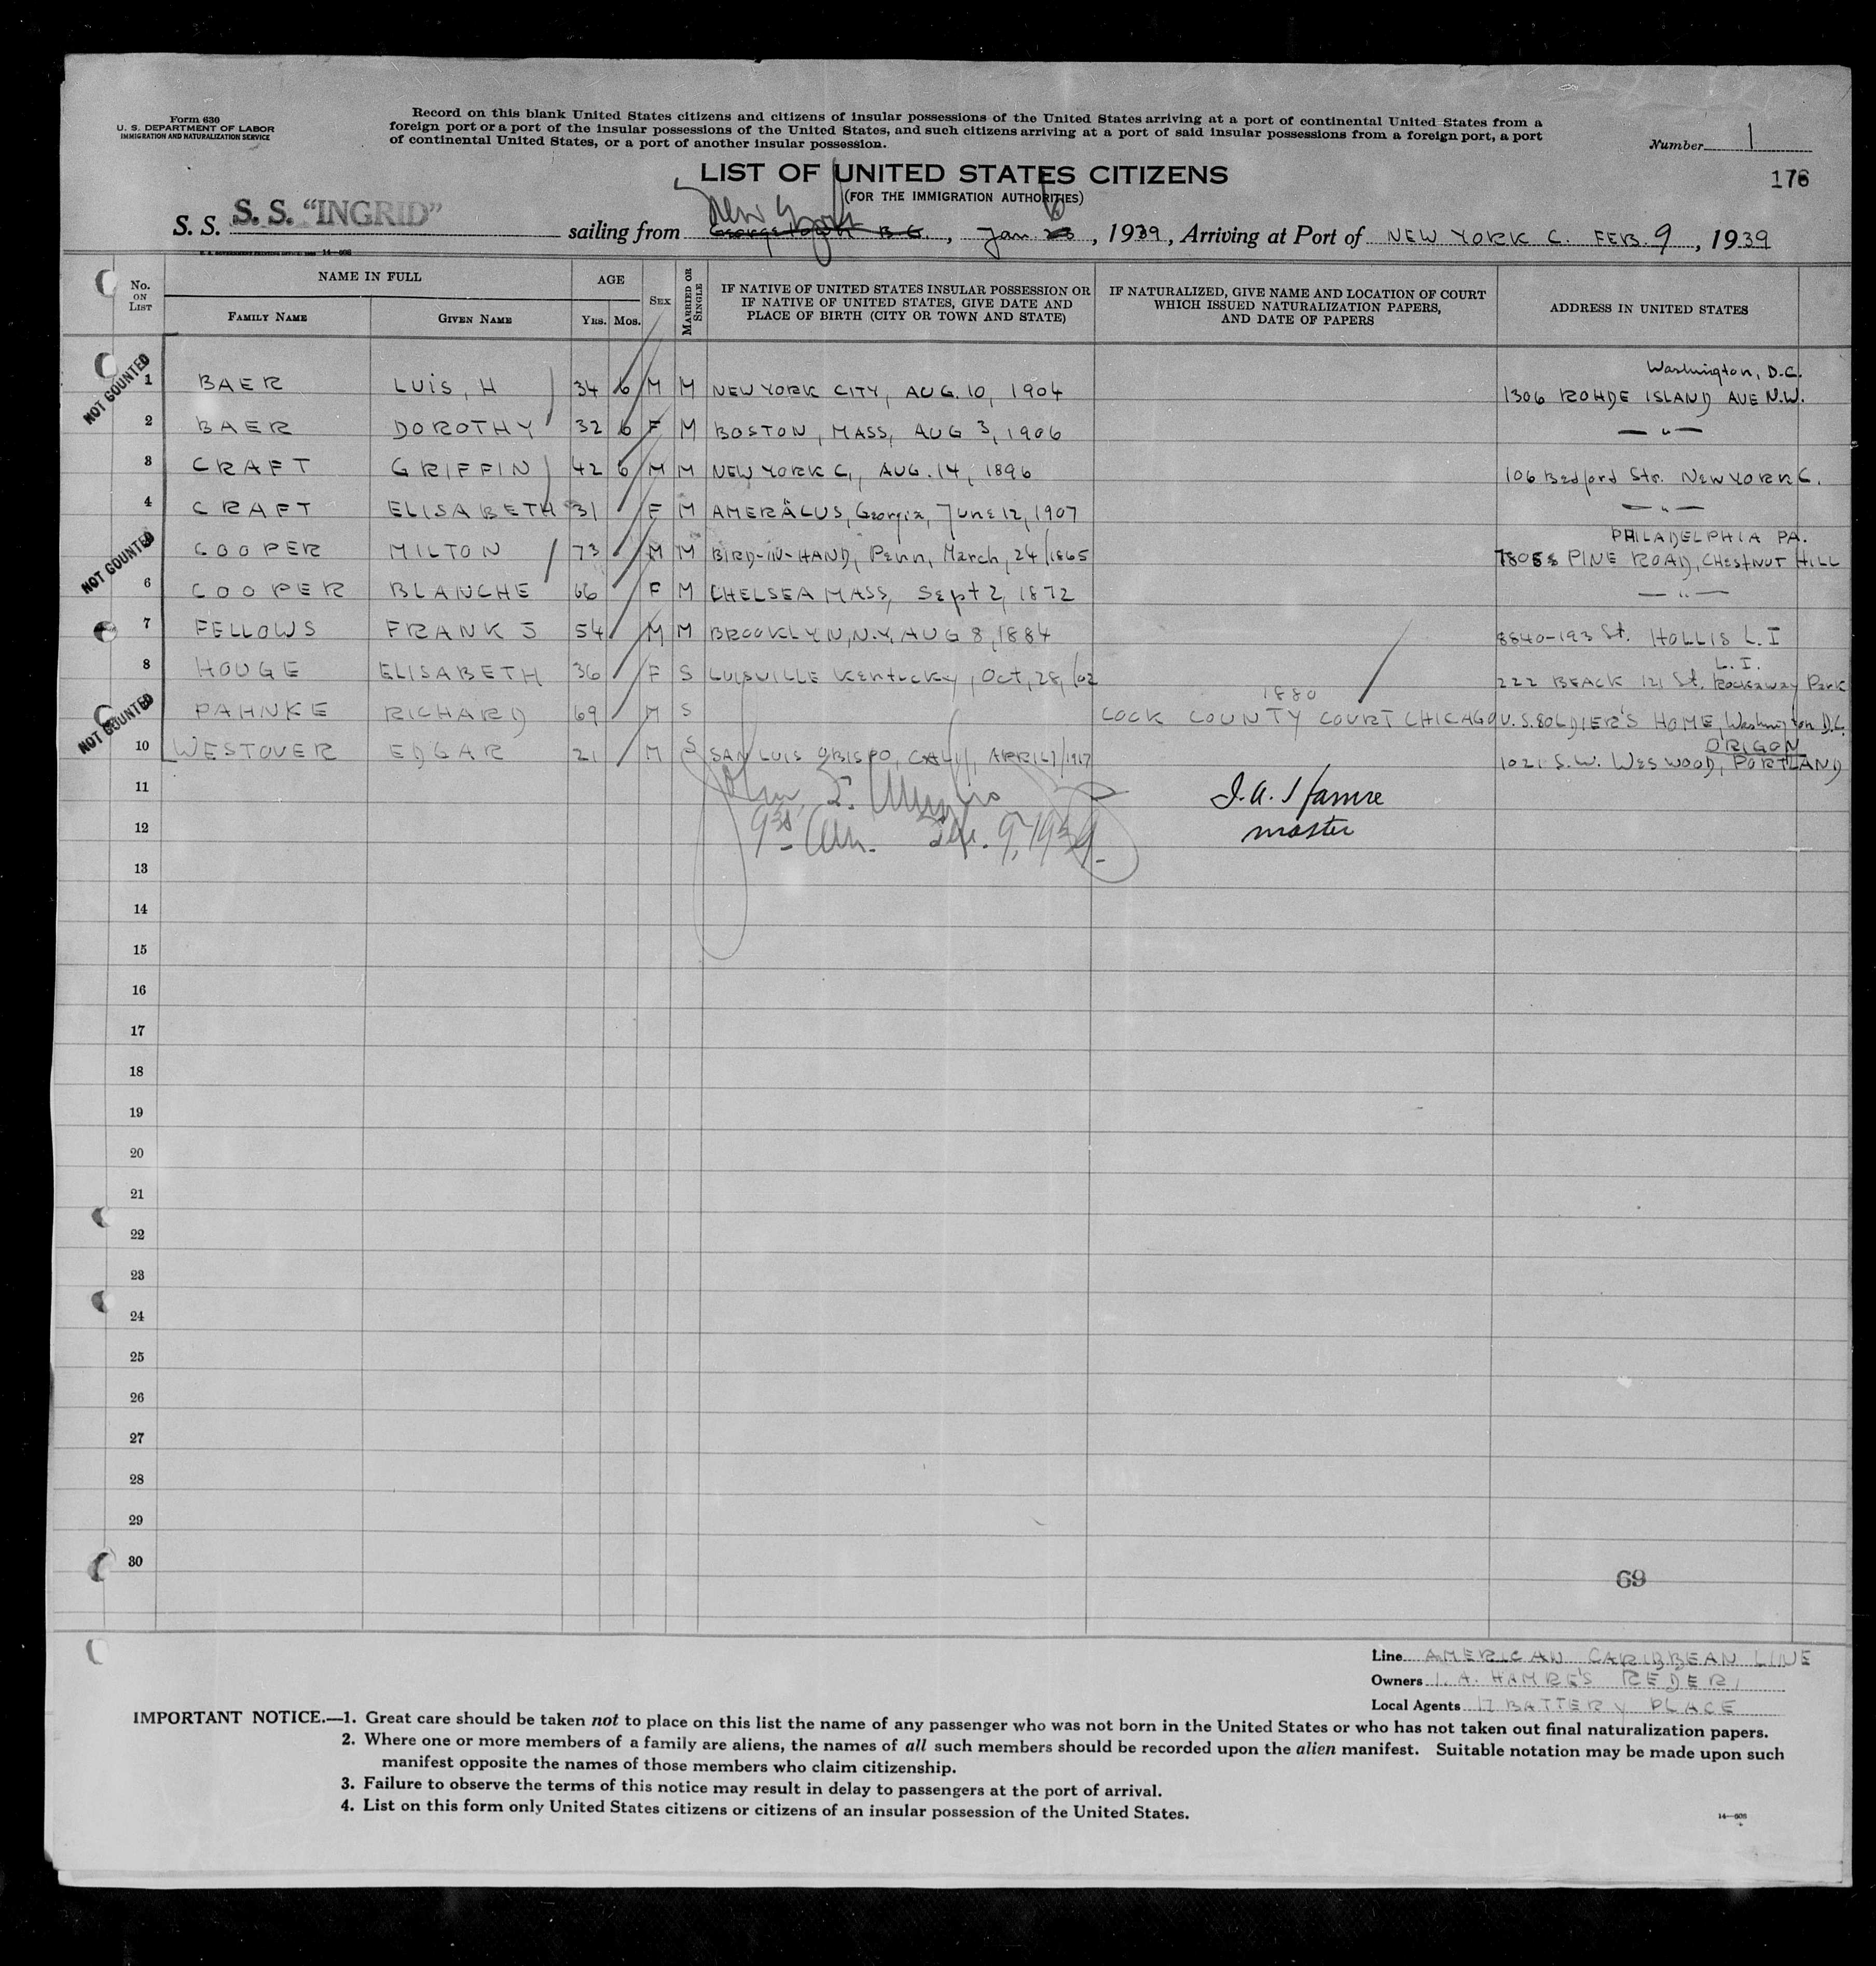 Form 630
U. S. DEPARTMENT OF LABOR
IMMIGRATION AND NATURALIZATION SERVICE
Record on this blank United States citizens and citizens of insular possessions of the United States arriving at a port of continental United States from a
foreign port or a port of the insular possessions of the United States, and such citizens arriving at a port of said insular possessions from a foreign port, a port
of continental United States, or a port of another insular possession.
Number 1
176
LIST OF UNITED STATES CITIZENS
(FOR THE IMMIGRATION AUTHORITIES)
New York
S. S. S. S. "INGRID" sailing from Georgetown B. G., Jan. , 1939, Arriving at Port of NEW YORK C. FEB. 9, 1939
No. ON LIST
NAME IN FULL
FAMILY NAME GIVEN NAME
AGE
YRS. MOS.
SEX
MARRIED OR SINGLE
IF NATIVE OF UNITED STATES INSULAR POSSESSION OR
IF NATIVE OF UNITED STATES, GIVE DATE AND
PLACE OF BIRTH (CITY OR TOWN AND STATE)
IF NATURALIZED, GIVE NAME AND LOCATION OF COURT
WHICH ISSUED NATURALIZATION PAPERS,
AND DATE OF PAPERS
ADDRESS IN UNITED STATES
NOT COUNTED
Washington, D.C.
1 BAER LUIS, H 34 6 M M NEW YORK CITY, AUG. 10, 1904 1306 ROHDE ISLAND AVE N.W.
2 BAER DOROTHY 32 6 F M BOSTON, MASS, AUG 3, 1906 — " —
3 CRAFT GRIFFIN 42 6 M M NEW YORK C, AUG. 14, 1896 106 Bedford Str. NEW YORK C.
4 CRAFT ELISABETH 31 F M AMERÄCUS, Georgia, JUNE 12, 1907 — " —
NOT COUNTED
PHILADELPHIA PA.
5 COOPER MILTON 73 M M BIRD-IN-HAND, Penn, March, 24/1865 PINE ROAD, CHESTNUT HILL
6 COOPER BLANCHE 66 F M CHELSEA MASS, Sept 2, 1872 — " —
7 FELLOWS FRANK J 54 M M BROOKLYN, N.Y, AUG 8, 1884 8840-193 St. HOLLIS L. I
L. I.
8 HOUGE ELISABETH 36 F S LUISVILLE Kentucky, Oct, 28, /02 222 BEACK 121 St. Rockaway Park
NOT COUNTED
1880
9 PAHNKE RICHARD 69 M S COCK COUNTY COURT CHICAGO U. S. SOLDIER'S HOME, Washington D.C.
ORIGON
10 WESTOVER EDGAR 21 M S SAN LUIS OBISPO, CALI, APRIL 7/1917 1021 S.W. WESWOOD, PORTLAND
11
I. A. Hamre
12
master
9, 1939
13
14
15
16
17
18
19
20
21
22
23
24
25
26
27
28
29
30
69
Line AMERICAN CARIBBEAN LINE
Owners I. A. HAMRE'S REDERI
Local Agents 17 BATTERY PLACE
IMPORTANT NOTICE.—1. Great care should be taken not to place on this list the name of any passenger who was not born in the United States or who has not taken out final naturalization papers.
2. Where one or more members of a family are aliens, the names of all such members should be recorded upon the alien manifest. Suitable notation may be made upon such
manifest opposite the names of those members who claim citizenship.
3. Failure to observe the terms of this notice may result in delay to passengers at the port of arrival.
4. List on this form only United States citizens or citizens of an insular possession of the United States.